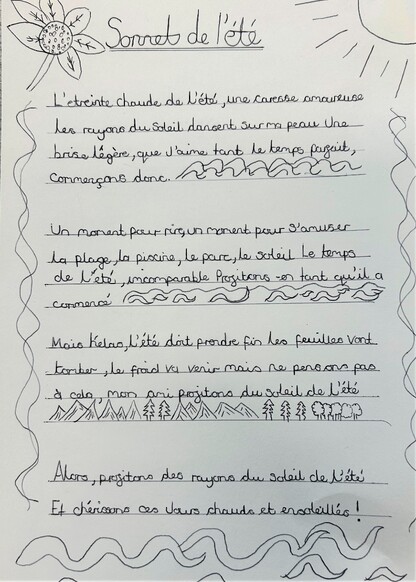 Sonnet de l'été
L'etreinte chaude de l'été, une caresse amoureuse
les rayons du soleil dansent sur ma peau Une
brise légère, que j'aime tant le temps parfait,
commençons donc.
Un moment pour rire, un moment pour s'amuser
la plage, la piscine, le parc, le soleil Le temps
de l'été, incomparable Profitons-en tant qu'il a
commencé
Mais Kelao, l'été doit prendre fin les feuilles vont
tomber, le froid va venir mais ne pensons pas
à cela, mon ami profitons du soleil de l'été
Alors, profitons des rayons du soleil de l'été
Et chérissons ces jours chauds et ensoleillés !